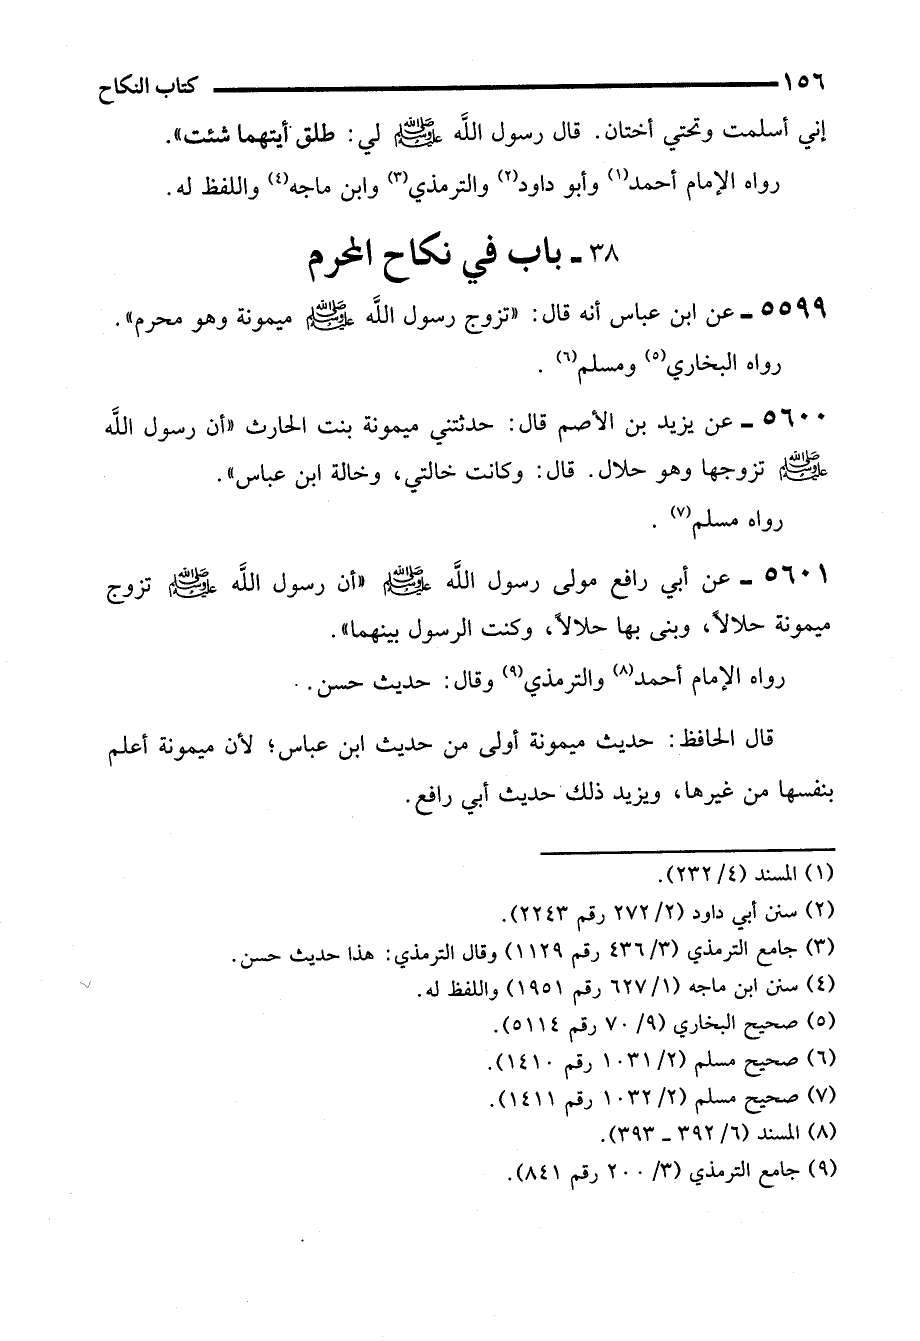 ١٥٦ كتاب النكاح
إني أسلمت وتحتي أختان. قال رسول اللَّه ﷺ لي: طلق أيتهما شئت».
رواه الإمام أحمد(١) وأبو داود(٢) والترمذي(٣) وابن ماجه(٤) واللفظ له.
٣٨ ـ باب في نكاح المحرم
٥٥٩٩ ـ عن ابن عباس أنه قال: «تزوج رسول اللَّه ﷺ ميمونة وهو محرم».
رواه البخاري(٥) ومسلم(٦) .
٥٦٠٠ ـ عن يزيد بن الأصم قال: حدثتني ميمونة بنت الحارث «أن رسول اللَّه
ﷺ تزوجها وهو حلال. قال: وكانت خالتي، وخالة ابن عباس».
رواه مسلم(٧) .
٥٦٠١ ـ عن أبي رافع مولى رسول اللَّه ﷺ «أن رسول اللَّه ﷺ تزوج
ميمونة حلالاً، وبنى بها حلالاً، وكنت الرسول بينهما».
رواه الإمام أحمد(٨) والترمذي(٩) وقال: حديث حسن.
قال الحافظ: حديث ميمونة أولى من حديث ابن عباس؛ لأن ميمونة أعلم
بنفسها من غيرها، ويزيد ذلك حديث أبي رافع.
(١) المسند (٤/ ٢٣٢).
(٢) سنن أبي داود (٢/ ٢٧٢ رقم ٢٢٤٣).
(٣) جامع الترمذي (٣/ ٤٣٦ رقم ١١٢٩) وقال الترمذي: هذا حديث حسن.
(٤) سنن ابن ماجه (١/ ٦٢٧ رقم ١٩٥١) واللفظ له.
(٥) صحيح البخاري (٩/ ٧٠ رقم ٥١١٤).
(٦) صحيح مسلم (٢/ ١٠٣١ رقم ١٤١٠).
(٧) صحيح مسلم (٢/ ١٠٣٢ رقم ١٤١١).
(٨) المسند (٦/ ٣٩٢ ـ ٣٩٣).
(٩) جامع الترمذي (٣/ ٢٠٠ رقم ٨٤١).